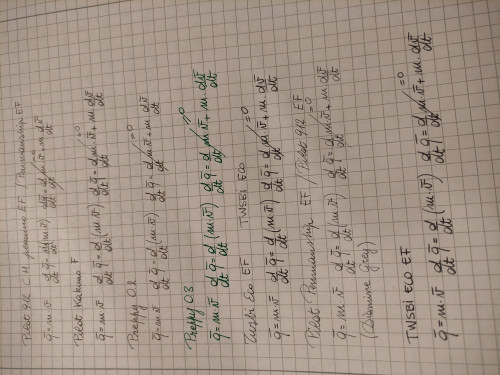 Pilot 912 C.H. penname EF / Penmanship EF
q̄=m·v̄ dq̄/dt=d/dt(m·v̄) dq̄/dt=dm/dt·v̄+m·dv̄/dt =0
Pilot Kakuno F
q̄=m·v̄ dq̄/dt=d/dt(m·v̄) dq̄/dt=dm/dt·v̄+m·dv̄/dt =0
Preppy 0.2
q̄=m·v̄ dq̄/dt=d/dt(m·v̄) dq̄/dt=dm/dt·v̄+m·dv̄/dt =0
Preppy 0.3
q̄=m·v̄ dq̄/dt=d/dt(m·v̄) dq̄/dt=dm/dt·v̄+m·dv̄/dt =0
Twsbi Eco EF TWSBI ECO
q̄=m·v̄ dq̄/dt=d/dt(m·v̄) dq̄/dt=dm/dt·v̄+m·dv̄/dt =0
Pilot Penmanship EF / Pilot 912 EF
q̄=m·v̄ dq̄/dt=d/dt(m·v̄) dq̄/dt=dm/dt·v̄+m·dv̄/dt =0
(Diamine gray)
TWSBI ECO EF
q̄=m·v̄ dq̄/dt=d/dt(m·v̄) dq̄/dt=dm/dt·v̄+m·dv̄/dt =0